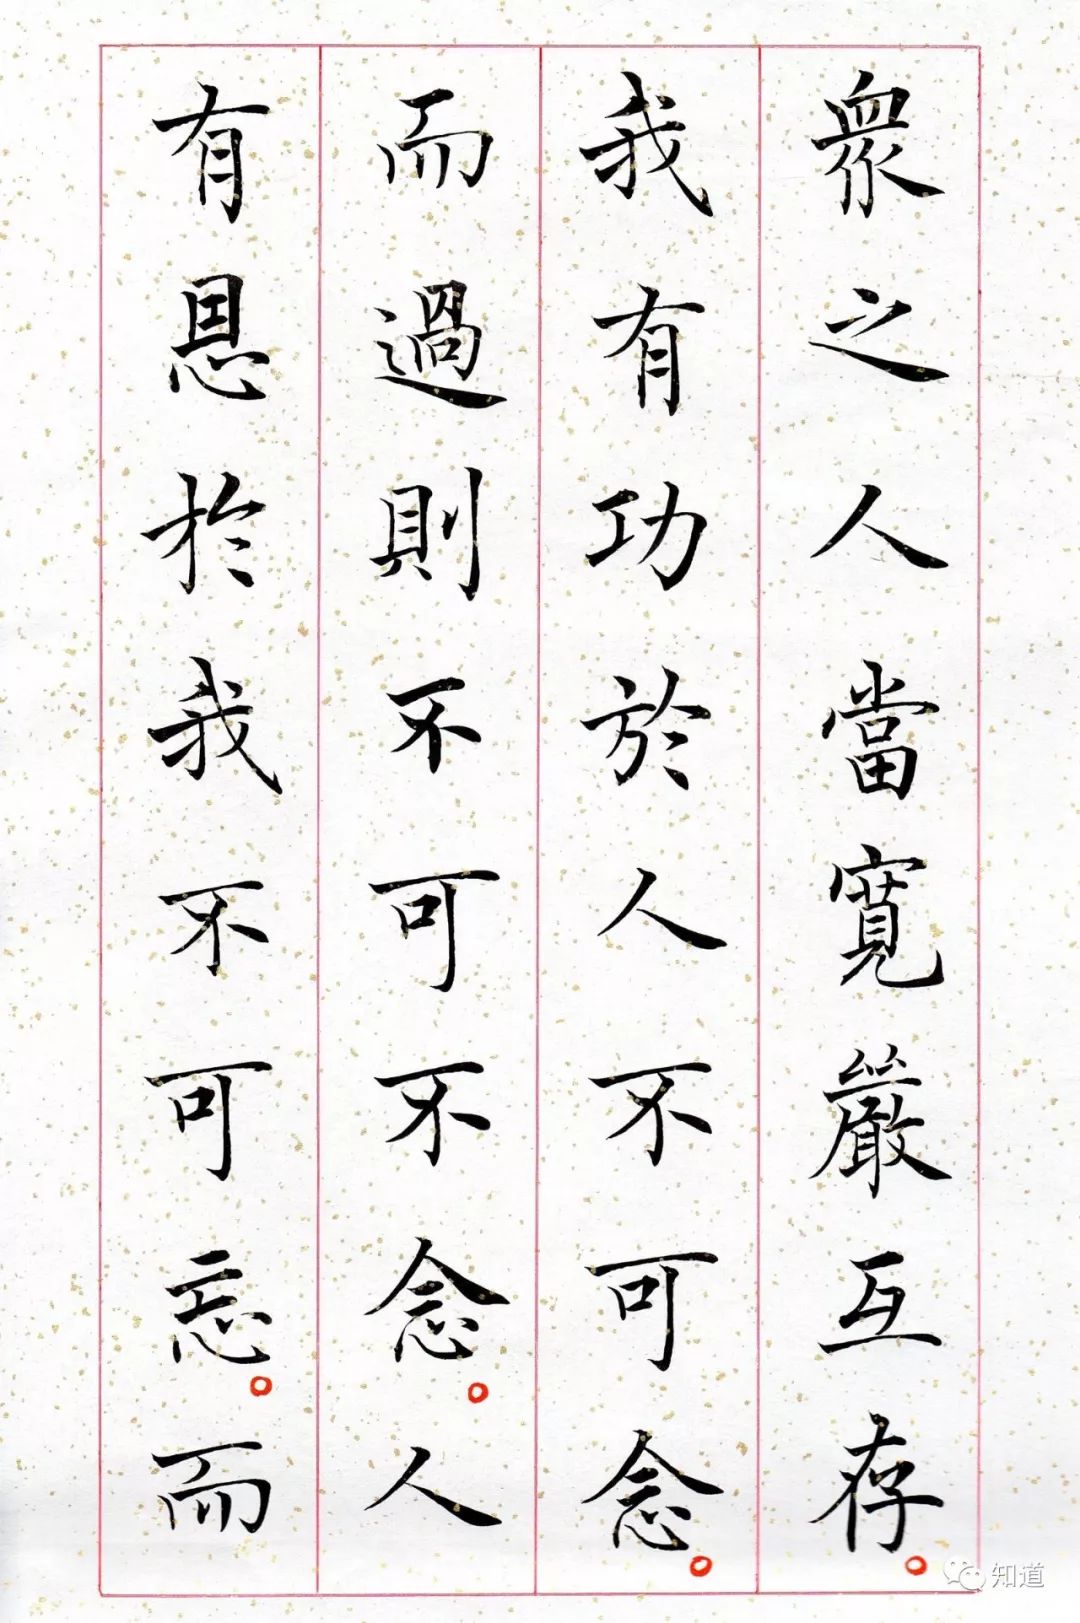 衆之人當寬嚴互存。
我有功於人不可念。
而過則不可不念。人
有恩於我不可忘。而
知道